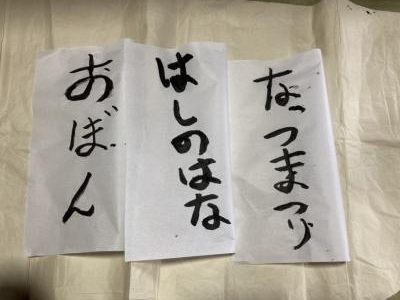 なつまつり
はしのはな
おぼん